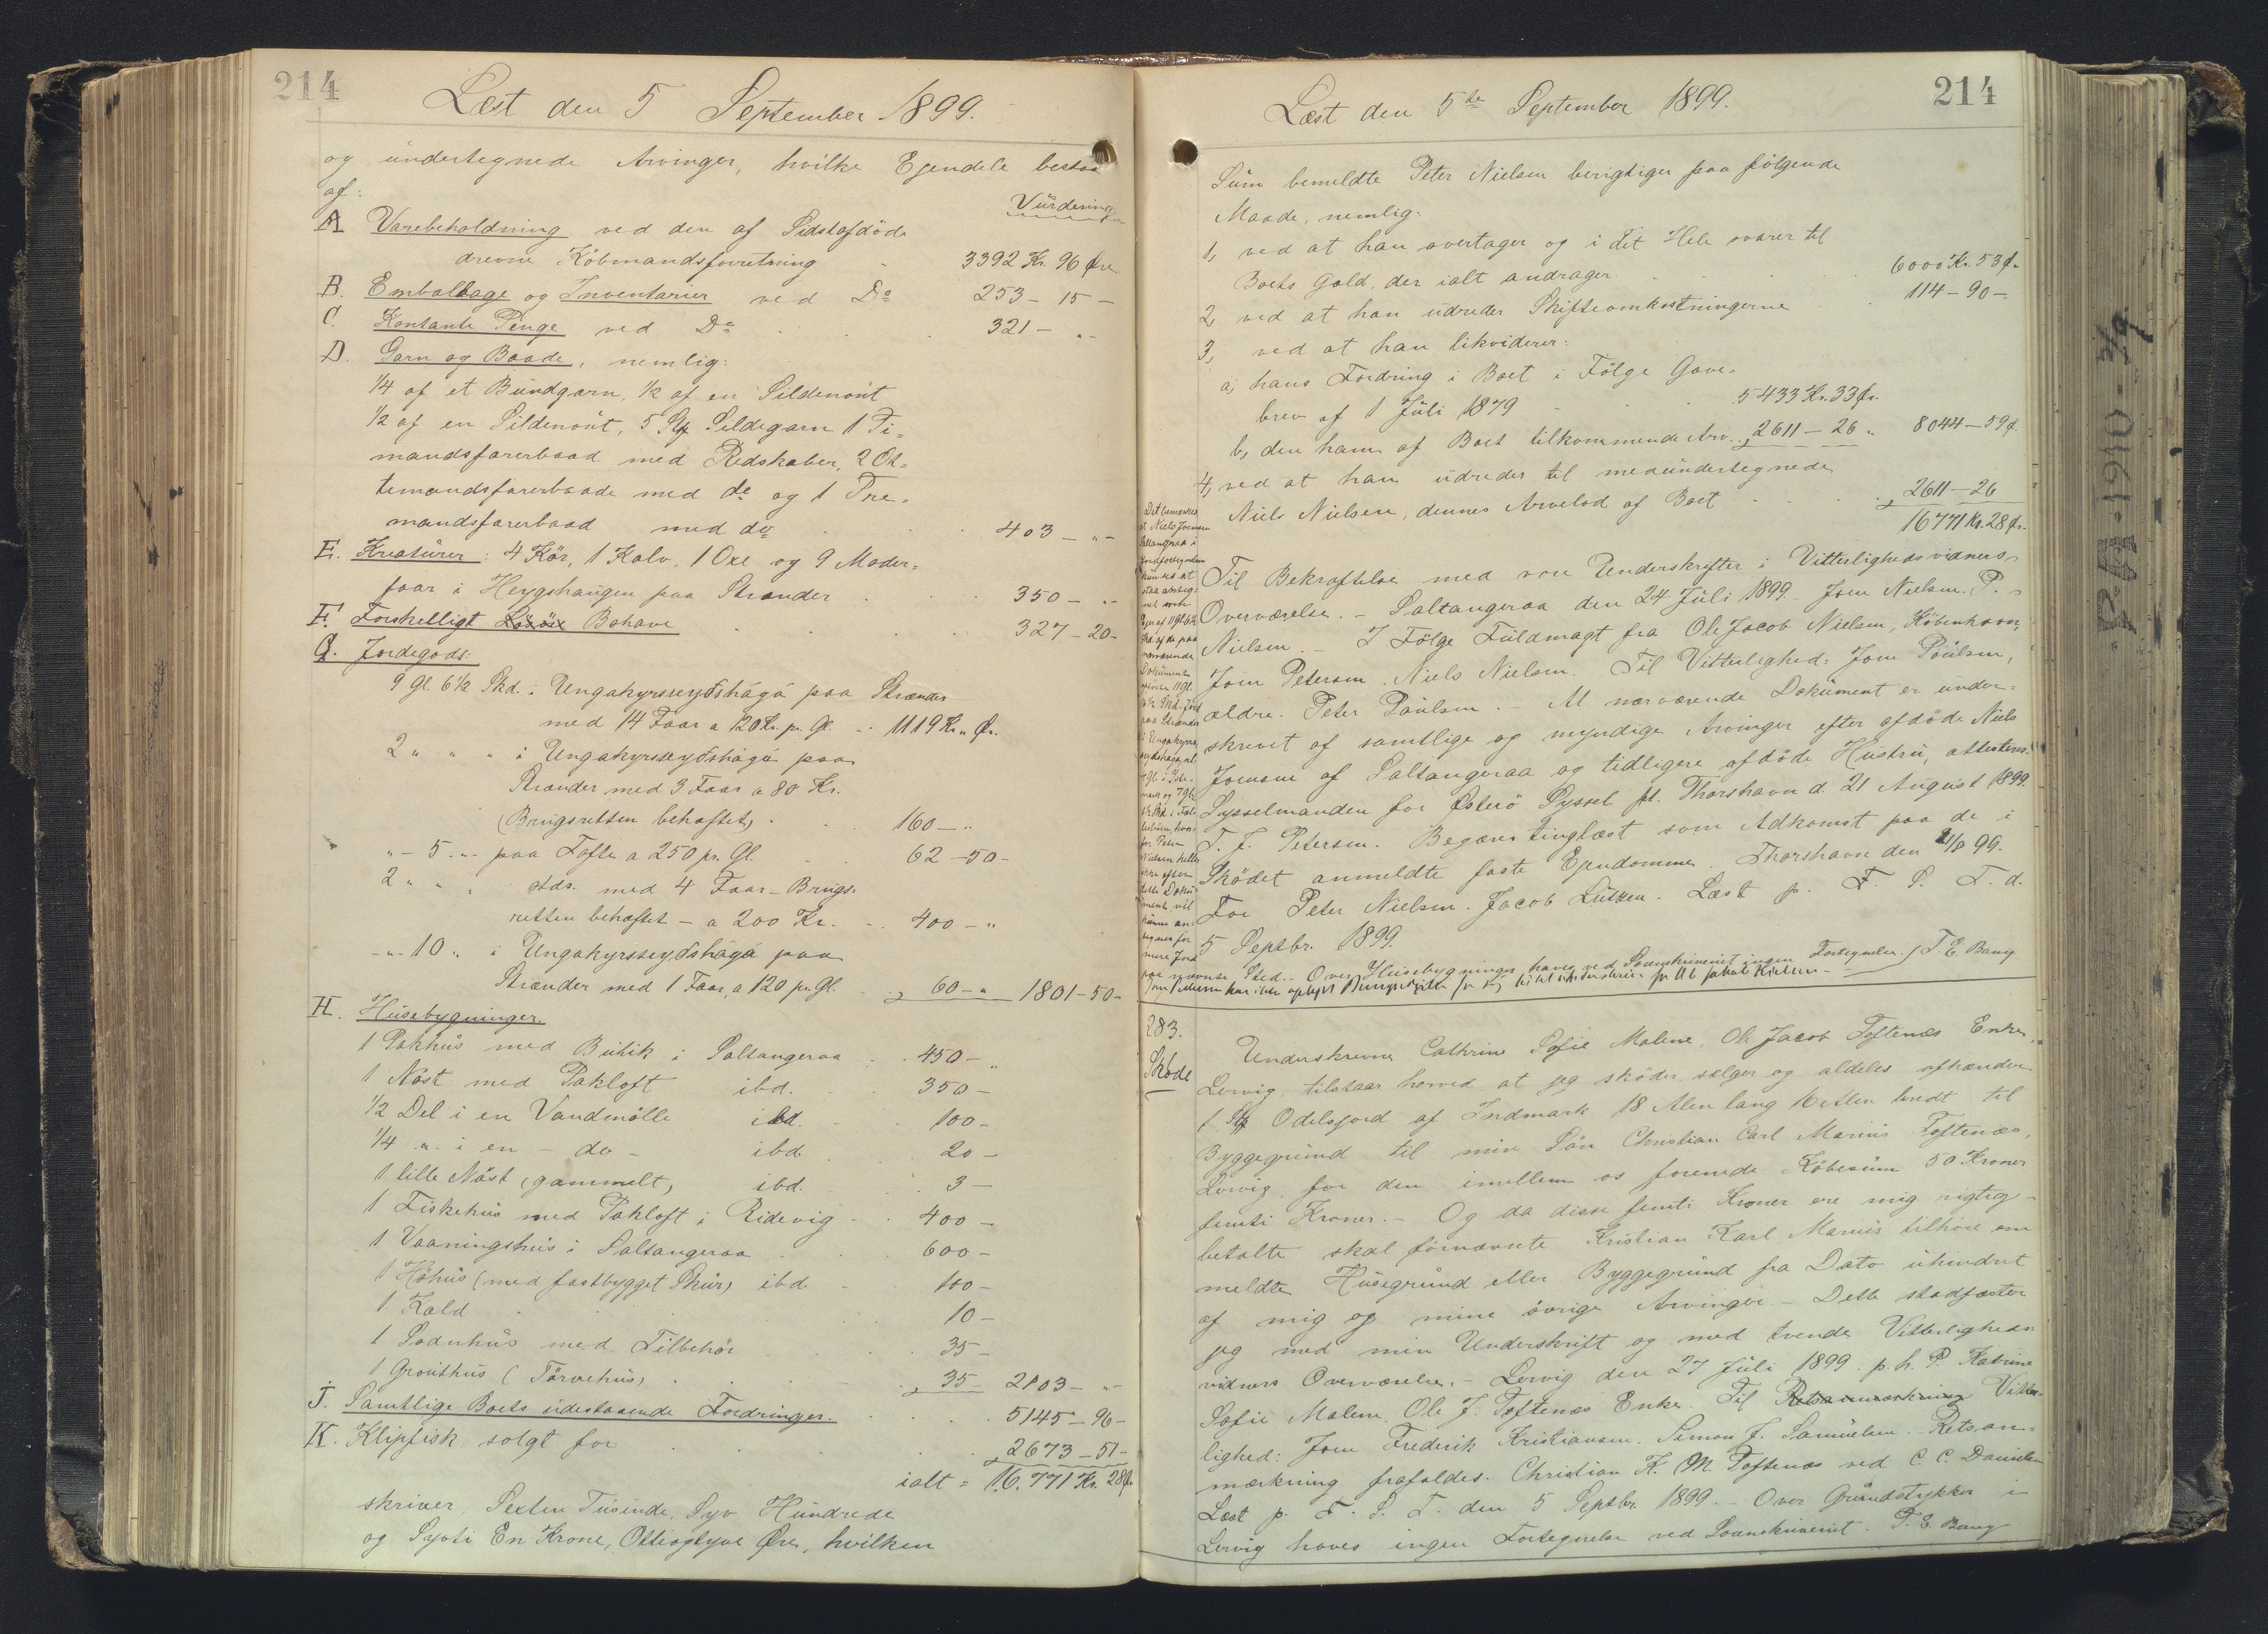 214
Læst den 5 September 1899.
og undertegnede Arvinger, hvilke Ejendele bestaa
af:
Vurdering
A Varebeholdning ved den af Sidstafdöde
drevne Köbmandsforretning - 3392 Kr. 96 Øre
B. Emballage og Inventarier ved Do 253 - 15 -
C. Kontante Penge ved Do . . 321 - " -
D. Garn og Baade, nemlig:
1/4 af et Bundgarn, 1/2 af en Sildenót
1/2 af en Sildenót, 5 Stk Sildegarn 1 Ti=
mandsfarerbaad med Redskaber, 2 Ot=
temandsfarerbaade med do og 1 Tre=
mandsfarerbaad med do . . 403 - " -
E. Kreaturer: 4 Kör, 1 Kalv, 1 Oxe og 9 Moder=
faar i Heygshaugen paa Strænder . . 350 - " -
F. Forskelligt Bohave . . . 327 - 20 -
G. Jordegods:
9 Gl. 6 1/2 Skd. i Ungakyrsseyðshágá paa Strænder
med 14 Faar a 120 Kr. pr. Gl. - 1119 Kr. " Ør.
2 " " " i Ungakyrsseyðshágá paa
Strænder med 3 Faar a 80 Kr.
(Brugsretten behæftet) . 160 - "
" - 5 - " - paa Tofte a 250 pr. Gl. . 62 - 50 -
2 " " " stds. med 4 Faar - Brugs-
retten behæftet - a 200 Kr. - 400 - "
- " - 10 " i Ungakyrsseyðshágá paa
Strænder med 1 Faar, a 120 pr. Gl. . 60 - " 1801 - 50 -
H. Husebygninger.
1 Pakhus med Butik i Saltangeraa . . 450 - "
1 Nöst med Pakloft ibd. . . 350 -
1/2 Del i en Vandmölle ibd. . . 100 -
1/4 " - i en - do - ibd. . 20 -
1 lille Nöst (gammelt) ibd. . . 3 -
1 Fiskehus med Pakloft i Ridevig . . 400 -
1 Vaaningshus i Saltangeraa . . 600 -
1 Höhus (med fastbygget Skur) ibd. - 100 -
1 Kald . . . 10 -
1 Sodnhus med Tilbehör . . 35 -
1 Grouthus (Törvehus) . . 35 - 2103 - " -
J. Samtlige Boets udestaaende Fordringer. . . 5145 - 96 -
K. Klipfisk solgt for . . . 2673 - 51 -
ialt = 16.771 Kr. 28 Ør
skriver Sexten Tusinde, Syv Hundrede
og Syvti En Krone, Otteogtyve Øre, hvilken
214
Læst den 5te September 1899.
Sum bemeldte Peter Nielsen berigtiger paa fölgende
Maade, nemlig:
1, ved at han overtager og i det Hele svarer til
Boets Gæld, der ialt andrager . . . 6000 Kr. 53 Ø.
2, ved at han udreder Skifteomkostningerne . 114 - 90 -
3, ved at han likviderer:
a, hans Fordring i Boet i Fölge Gave-
brev af 1 Juli 1879 - . . 5433 Kr. 33 Ør.
b, den ham af Boet tilkommende Arv . . 2611 - 26 " 8044 - 59 Ø.
4, ved at han udreder til medundertegnede
Niels Nielsen, dennes Arvelod af Boet . . . 2611 - 26
16771 Kr. 28 Ør.
Til Bekræftelse med vore Underskrifter i Vitterlighedsvidners
Overværelse. - Saltangeraa den 24 Juli 1899. Joen Nielsen. P.
Nielsen. - I Fölge Fuldmagt fra Ole Jacob Nielsen, Köbenhavn,
Joen Petersen. Niels Nielsen. Til Vitterlighed: Joen Poulsen,
ældre. Peter Poulsen. - At nærværende Dokument er under=
skrevet af samtlige og myndige Arvinger efter afdöde Niels
Joensen af Saltangeraa og tidligere afdöde Hustru, attesteres.
Sysselmanden for Österö Syssel pt. Thorshavn d. 21 August 1899.
T. F. Petersen. Begæres tinglæst som Adkomst paa de i
Sködet anmeldte faste Ejendomme. Thorshavn den 21/8 99.
For Peter Nielsen. Jacob Lützen. Læst p. F. S. T. d.
5 Septbr. 1899.
Det bemærkes,
at Niels Joensen
Saltangraa i
Jordfortegnelsen
kun ses at
staa anteg-
net som
Ejer af 11 Gl. 6 1/2
Skd. af de paa
nærværende
Dokument
opförte 11 Gl.
6 1/2 Skd. Jord
paa Strænder
i Ungakyrs-
seydshaga, al
hvor-
for Peter
Nielsen heller
ikke efter
dette Doku-
ment vil
kunne an-
tegnes for
mere Jord
paa nævnte Sted. - Over Husebygninger haves ved Sorenskriveriet ingen Fortegnelse. / T. E. Bang
283.
Sköde
Underskrevne Cathrine Sofie Malene, Ole Jacob Toftenæs Enke,
Lervig, tilstaar herved at jeg sköder, sælger og aldeles afhænder
1 Stk Odelsjord af Indmark 18 Alen lang 16 Alen bredt til
Byggegrund til min Sön Christian Carl Marius Toftenæs,
Lervig, for den imellem os forenede Köbesum 50 Kroner
femti Kroner. - Og da disse femti Kroner ere mig rigtig
betalte skal fornævnte Kristian Karl Marius tilhöre om
meldte Husegrund eller Byggegrund fra Dato uhindret
af mig og mine övrige Arvinger. - Dette stadfæster
jeg med min Underskrift og med tvende Vitterligheds
vidners Overværelse. - Lervig den 27 Juli 1899. p. h. P. Katrine
Sofie Malene, Ole J. Toftenæs Enke. Til Retsanmærkning Vitter-
lighed: Joen Frederik Kristiansen. Simon J. Samuelsen. Retsan=
mærkning frafaldes. Christian K. M. Toftenæs ved C. C. Danielsen
Læst p. F. S. T. den 5 Septbr. 1899. - Over Grundstykker i
Lervig haves ingen Fortegnelse ved Sorenskriveriet. T. E. Bang